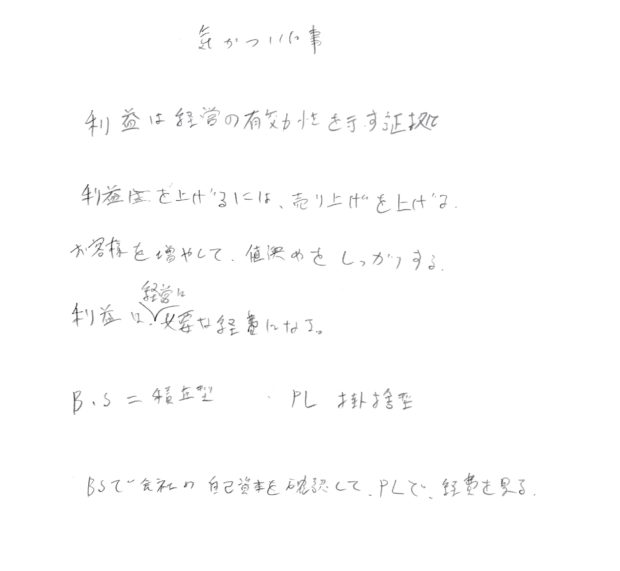 気がついた事
利益は経営の有効性を示す証拠に
利益を上げるには、売り上げを上げる.
お客様を増やして、値決めをしっかりする.
利益は、経営に必要な経費になる。
B.S = 積立型 PL 掛捨型
BSで会社の自己資本を確認して、PLで、経費を見る.